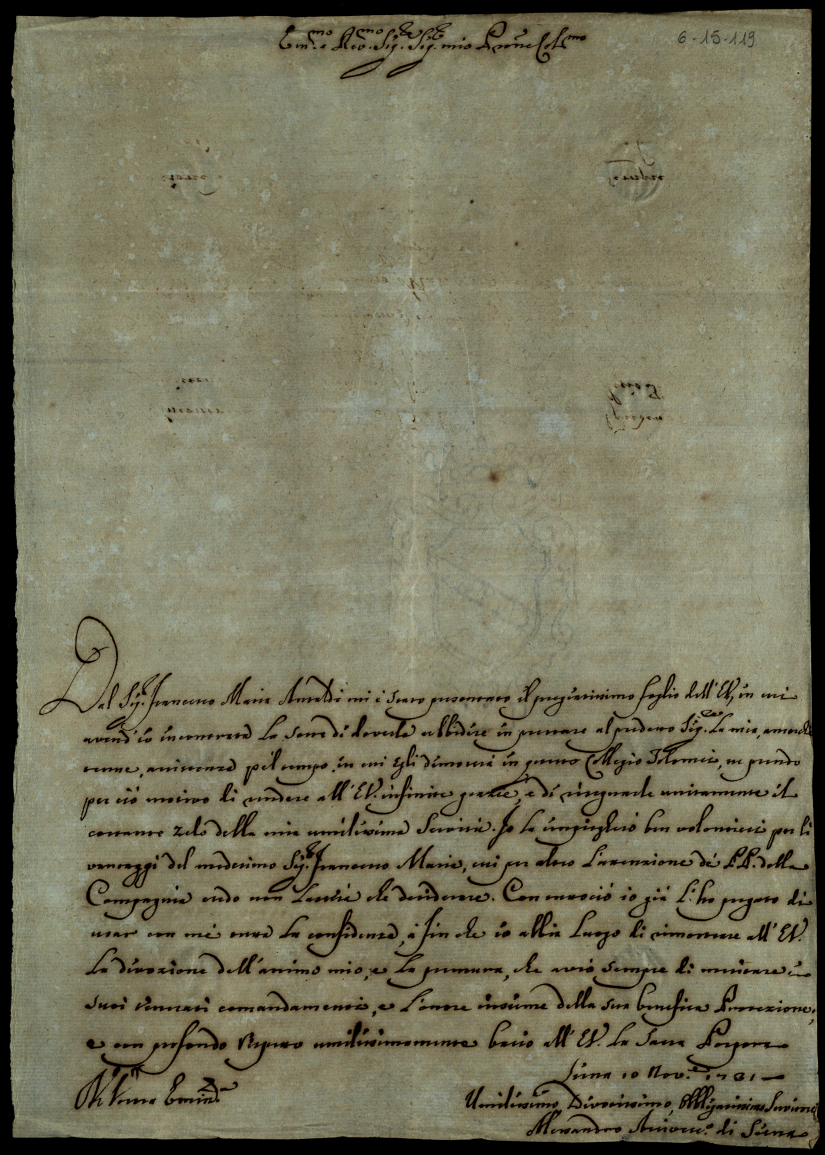 Em.mo e Rev.mo Sig.r Sig.r mio P.rone Col.mo
6-15-119
Dal Sig.r Francesco Maria mi è stato presentato il pregiatissimo foglio dell'EV., in cui
avend'io incontrata la sorte di doverla ubbidire in prestare al predetto Sig.re la mia, amorche
tenue, assistenza pel tempo, in cui egli dimorerà in questo Collegio Tolomei, ne prendo
per ciò motivo di rendere all'EV. infinite grazie, e di rinquarle unitamente il
costante zelo della mia umilissima Servitù. Io la impiegherò ben volontieri per li
vantaggi del medesimo Sig.r Francesco Maria, cui per altro l'attenzione de' PP. della
Compagnia credo non lascerà che desiderare. Con tuttociò io già l'ho pregato di
usar con me tutta la confidenza, a fin che io abbia luogo di rimostrare all'EV.
la divozione dell'animo mio, e la premura, che avrò sempre di meritare i
suoi stimati comandamenti, e l'onore insieme della sua benefica Protezione;
e con profondo rispetto umilissimamente bacio all'EV. la Sacra Porpora
Siena 10 Nov.e 1731
Umilissimo, Divotissimo, Obbligatissimo Servitore
Alessandro Arcivesc.o di Siena